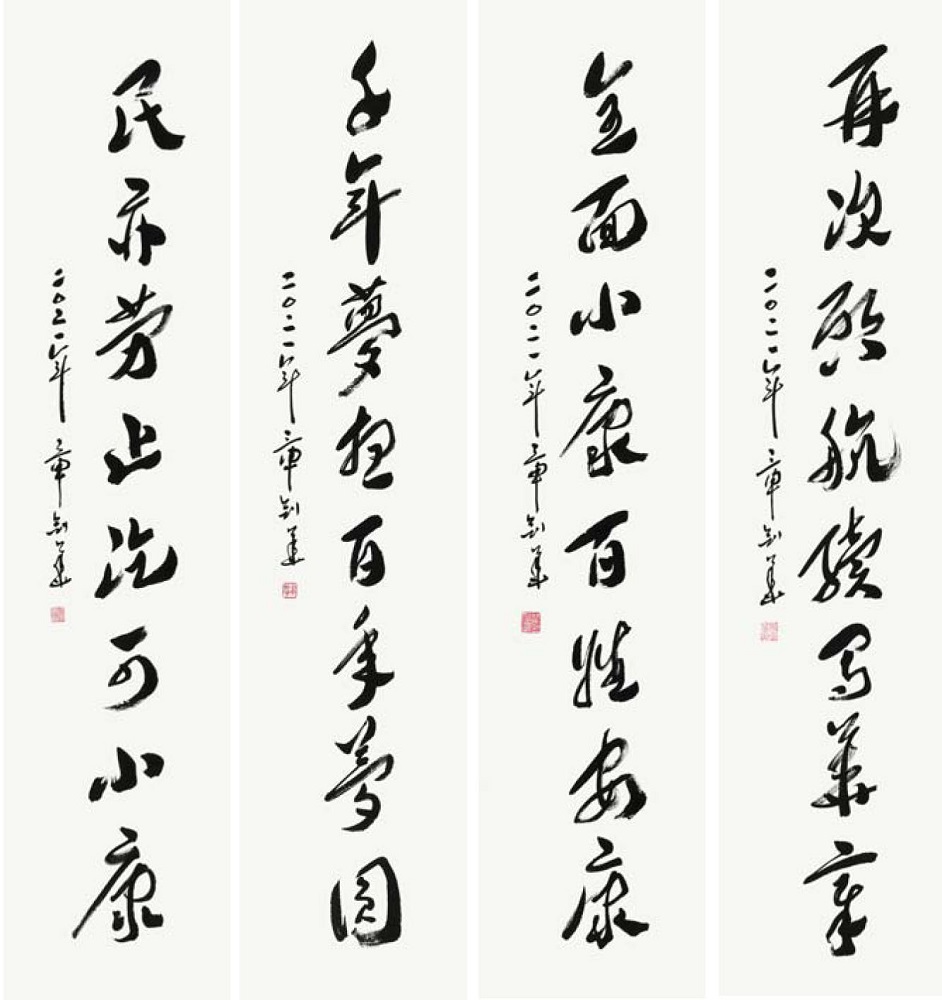 再次启航续写华章
二〇二一年 章剑华
全面小康百姓安康
二〇二一年 章剑华
千年梦想百年梦圆
二〇二一年 章剑华
民亦劳止汔可小康
二〇二一年 章剑华